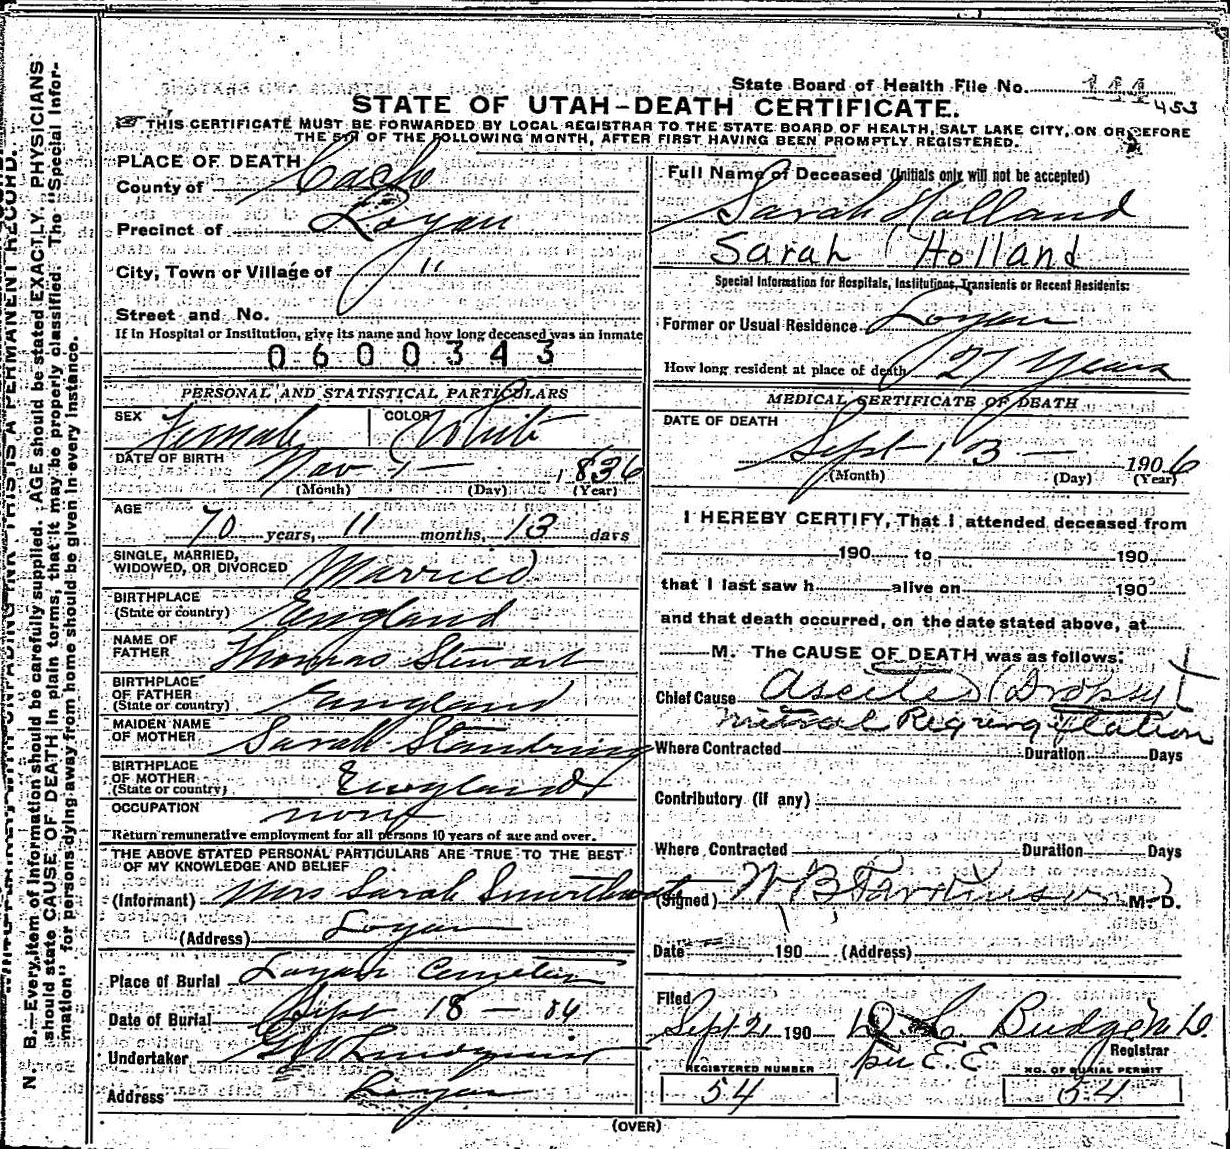 State Board of Health File No. 144 453
STATE OF UTAH-DEATH CERTIFICATE.
THIS CERTIFICATE MUST BE FORWARDED BY LOCAL REGISTRAR TO THE STATE BOARD OF HEALTH, SALT LAKE CITY, ON OR BEFORE
THE 5TH OF THE FOLLOWING MONTH, AFTER FIRST HAVING BEEN PROMPTLY REGISTERED.
N. B.—Every item of information should be carefully supplied. AGE should be stated EXACTLY. PHYSICIANS
should state CAUSE OF DEATH in plain terms, that it may be properly classified. The "Special Infor-
mation" for persons dying away from home should be given in every instance.
PLACE OF DEATH
County of Cache
Precinct of Logan
City, Town or Village of "
Street and No.
If in Hospital or Institution, give its name and how long deceased was an inmate
0600343
PERSONAL AND STATISTICAL PARTICULARS
SEX Female COLOR White
DATE OF BIRTH Nov 1 — 1836
(Month) (Day) (Year)
AGE
70 years, 11 months, 13 days
SINGLE, MARRIED,
WIDOWED, OR DIVORCED Married
BIRTHPLACE
(State or country) England
NAME OF
FATHER Thomas Stewart
BIRTHPLACE
OF FATHER
(State or country) England
MAIDEN NAME
OF MOTHER Sarah Standring
BIRTHPLACE
OF MOTHER
(State or country) England
OCCUPATION none
Return remunerative employment for all persons 10 years of age and over.
THE ABOVE STATED PERSONAL PARTICULARS ARE TRUE TO THE BEST
OF MY KNOWLEDGE AND BELIEF
(Informant) Mrs Sarah
(Address) Logan
Place of Burial Logan Cemetery
Date of Burial Sept 18 — 06
Undertaker
Address Logan
Full Name of Deceased (Initials only will not be accepted)
Sarah Holland
Sarah Holland
Special Information for Hospitals, Institutions, Transients or Recent Residents:
Former or Usual Residence Logan
How long resident at place of death 27 Years
MEDICAL CERTIFICATE OF DEATH
DATE OF DEATH
Sept 13 — 1906
(Month) (Day) (Year)
I HEREBY CERTIFY, That I attended deceased from
190 to 190
that I last saw h alive on 190
and that death occurred, on the date stated above, at
M. The CAUSE OF DEATH was as follows:
Chief Cause Ascites (Dropsy)
Mitral Regurgitation
Where Contracted Duration Days
Contributory (if any)
Where Contracted Duration Days
(Signed) W B Parkinson M. D.
Date 190 (Address)
Filed
Sept 21 190 D C Budge M D
per E. E Registrar
REGISTERED NUMBER NO. OF BURIAL PERMIT
54 54
(OVER)